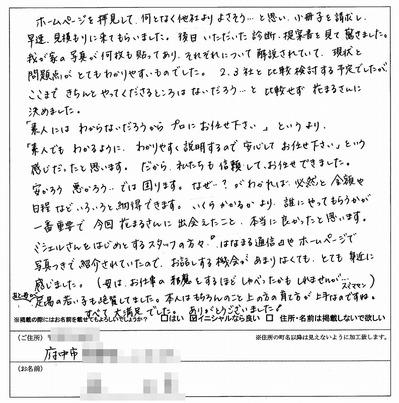 ホームページを拝見して、何となく他社よりよさそう…と思い、小冊子を請求し、
早速、見積もりに来てもらいました。後日いただいた診断・提案書を見て驚きました。
我が家の写真が何枚も貼ってあり、それぞれについて解説されていて、現状と
問題点がとてもわかりやすいものでした。2、3社と比較検討する予定でしたが
ここまできちんとやってくださるところはないだろう…と比較せず花まるさんに
決めました。
「素人にはわからないだろうからプロにお任せ下さい」というより、
「素人でもわかるように、わかりやすく説明するので安心してお任せ下さい」という
感じだったと思います。だから、私たちも信頼してお任せできました。
安かろう悪かろう…では困ります。なぜ…?がわかれば、必然と金額や
日程などいろいろと納得できます。いくらかかるかより、誰にやってもらうかが
一番重要で今回花まるさんに出会えたこと、本当に良かったと思います。
ミシェルさんをはじめとするスタッフの方々。はなまる通信やホームページで
写真つきで紹介されていたので、お話しする機会があまりなくても、とても身近に
感じました。(母は、お仕事の邪魔しするほどしゃべったかもしれませんが…スイマセン)
足場の若い方も絶賛してました。本人はもちろんのこと上の方の育て方が上手なのですね。
すべて大満足でした。ありがとうございました。
※掲載の際にはお名前を載せてもよろしいでしょうか? □はい ☑イニシャルなら良い □住所・名前は掲載しないで欲しい
(ご住所) 〒 ※住所の町名以降は見えないように加工致します。
府中市
(お名前)